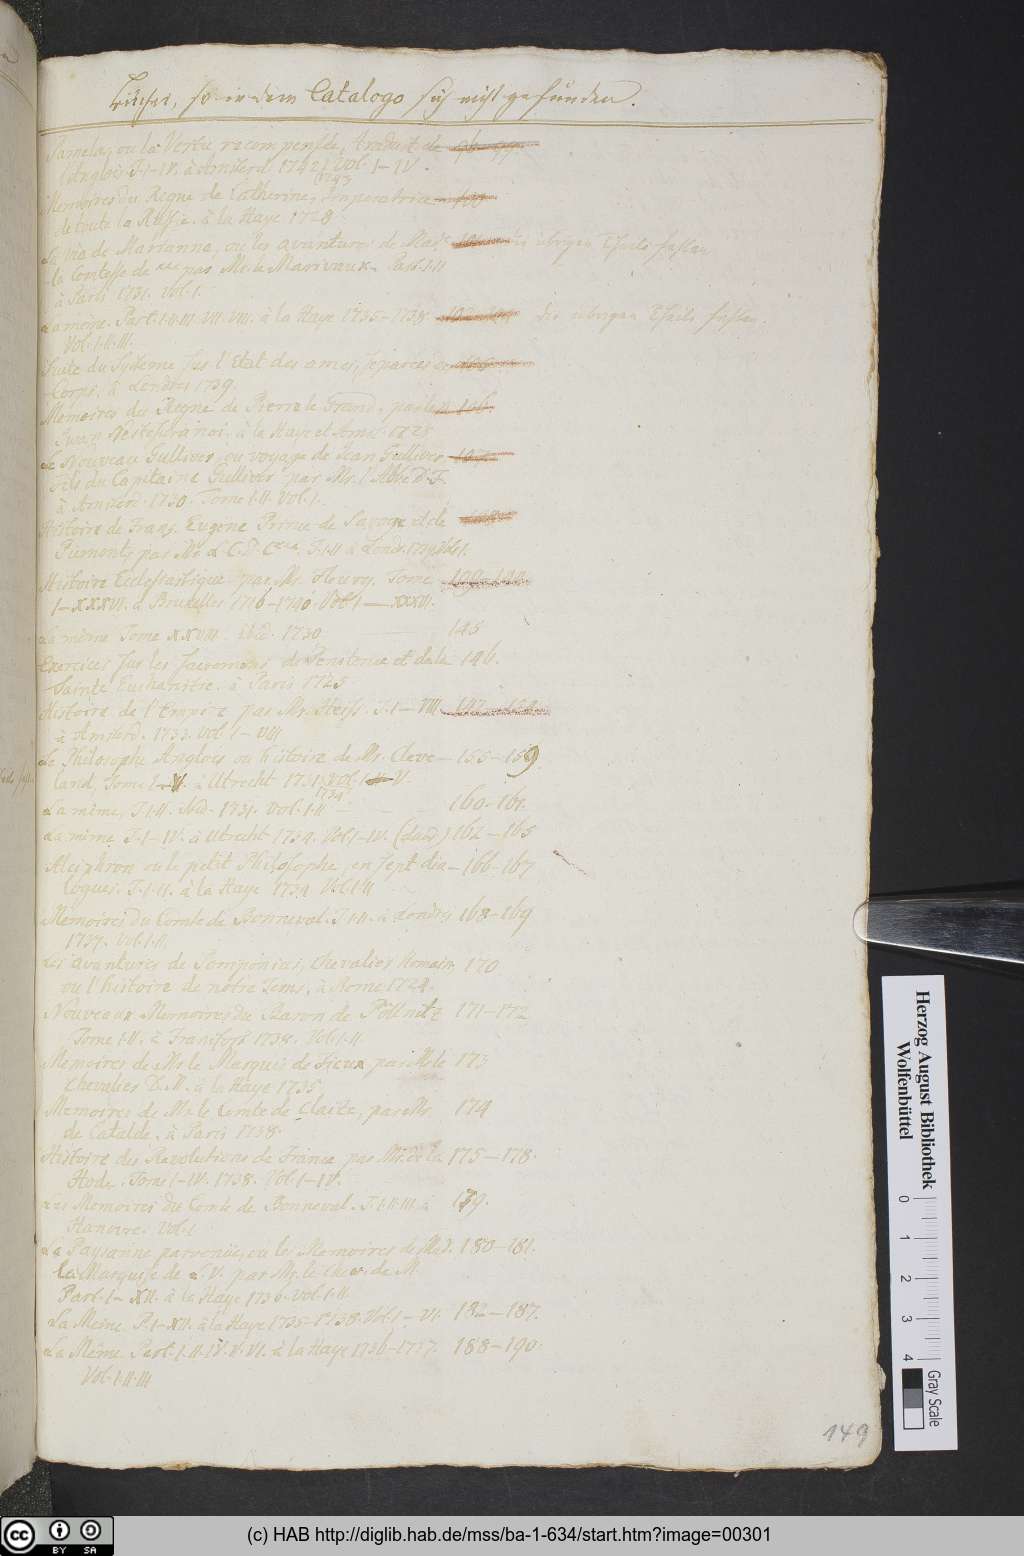 Bücher, so in dem Catalogo sich nicht gefunden.
Pamela, ou la Vertu recompensée, traduit de
l'Anglois T. I-IV. à Amsterd. 1742. Vol. I-IV.
1743
Memoires du Regne de Catherine, Imperatrice
de toute la Russie. à la Haye 1728.
La Vie de Marianne, ou les avantures de Mad. die übrigen Theile fehlen
la Comtesse de *** par Mr. de Marivaux. Part. I-II
à Paris 1731. Vol. I.
La meme. Part. I. II. III. VII. VIII. à la Haye 1735-1738. die übrigen Theile fehlen.
Vol. I. II. III.
Suite du Systeme sur l'Etat des ames, separées de
Corps, à Londres 1739.
Memoires du Regne de Pierre le Grand, par le B. 106.
Iwan Nestesuranoi. à la Haye et Amst. 1725
Le Nouveau Gulliver, ou voyage de Jean Gulliver
Fils du Capitaine Gulliver par Mr. l'Abbé D. F.
à Amsterd. 1730. Tome I. II. Vol. I.
Histoire de Franç. Eugene Prince de Savoye et de
Piemont, par Mr. L. C. D. C*** T. I. II à Londr.
Histoire Ecclesiastique par Mr. Fleury. Tome
I-XXXVI. à Bruxelles 1716-1740. Vol. I-XXXVI.
La même Tome XXVIII. ibid. 1730 145
Exercices sur les Sacremens de Penitence et de la 146.
Sainte Eucharistie. à Paris 1725
Histoire de l'Empire par Mr. Heiss. T. I-VIII.
à Amsterd. 1733. Vol. I-VIII
Le Philosophe Anglois ou histoire de Mr. Cleve- 155-159
land, Tome I-V. à Utrecht 1731. Vol. I-V.
1734
La même, T. I. II. ibid. 1731. Vol. I. II 160-161.
La même T. I-IV. à Utrecht 1734. Vol. I-IV. 162-165
Alciphron ou le petit Philosophe en sept dia- 166-167
logues. T. I. II. à la Haye 1734. Vol. I. II
Memoires du Comte de Bonneval. T. I. II. à Londres 168-169
1737. Vol. I. II.
Les avantures de Pomponius, Chevalier Romain, 170
ou l'histoire de notre Tems. à Rome 1724.
Nouveaux Memoires du Baron de Pöllnitz 171-172
Tome I. II. à Francfort 1738. Vol. I. II
Memoires de Mr. le Marquis de Fieux par M. le 173
Chevalier D. M. à la Haye 1735
Memoires de Mr. le Comte de Claize, par Mr. 174
de Catalde. à Paris 1738.
Histoire des Revolutions de France par Mr. de la 175-178.
Hode. Tome I-IV. 1738. Vol. I-IV.
Les Memoires du Comte de Bonneval. T. I. II. III. à 179.
Hanovre. Vol. I
La Paysanne parvenüe, ou les Memoires de Mad. 180-181.
la Marquise de L. V. par Mr. le Chev. de M.
Part. I-XII. à la Haye 1736. Vol. I. II
La Meme. P. I-XII. à la Haye 1735-1738. Vol. I-VI. 182-187.
La Même. Part. I. II. IV. V. VI. à la Haye 1736-1737. 188-190.
Vol. I. II. III
149
Herzog August Bibliothek
Wolfenbüttel
0 1 2 3 4
Gray Scale
cc BY SA
(c) HAB http://diglib.hab.de/mss/ba-1-634/start.htm?image=00301